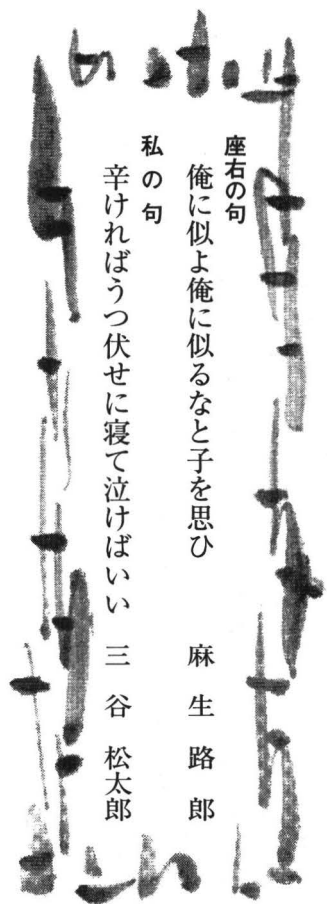 座右の句
俺に似よ俺に似るなと子を思ひ 麻生路郎
私の句
辛ければうつ伏せに寝て泣けばいい 三谷松太郎